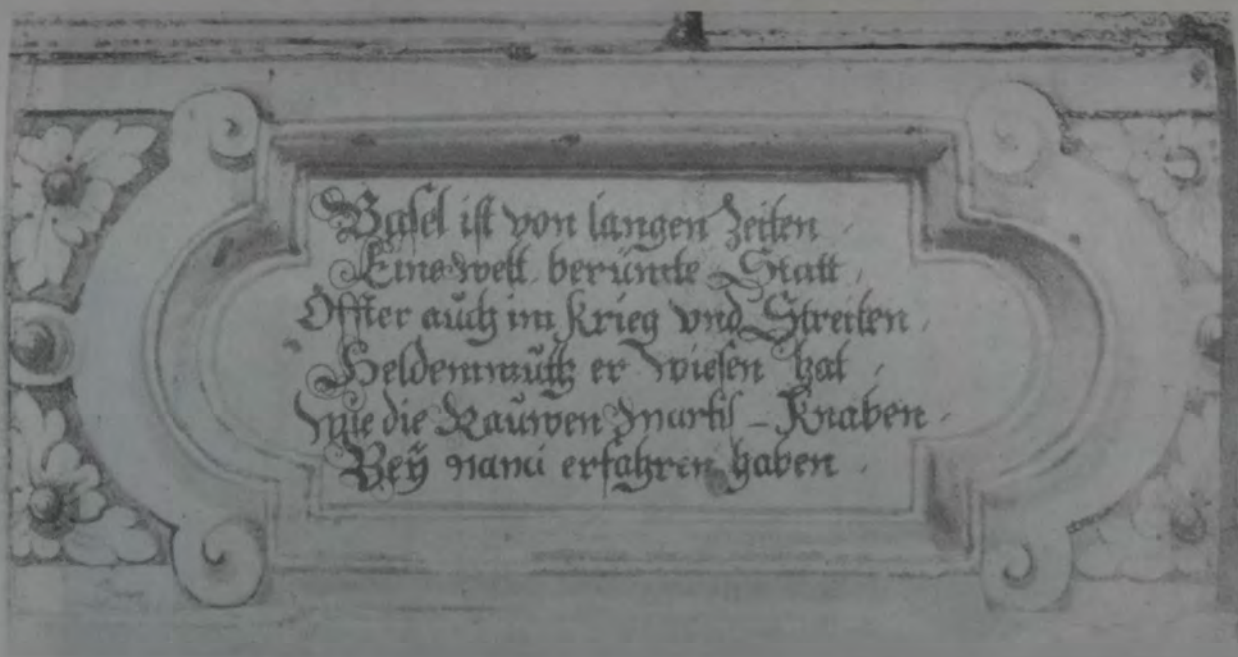 Basel ist von langen Zeiten
Eine weit berümte Statt
Öffter auch im Krieg vnd Streiten
Heldenmüth er wiesen hat
Wie die Rauwen Martis - Knaben
Beÿ nanci erfahren haben